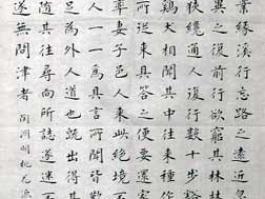 業緣溪行忘路之遠近忽
異之復前行欲窮其林
狹纔通人復行數十步
鷄犬相聞其中往來種作
所從來具答之便要還家
率妻子邑人來此絕境不
人一一為具言所聞皆歎
足為外人道也既出得其
隨其往尋向所誌遂迷不
遂無問津者 陶淵明桃花源